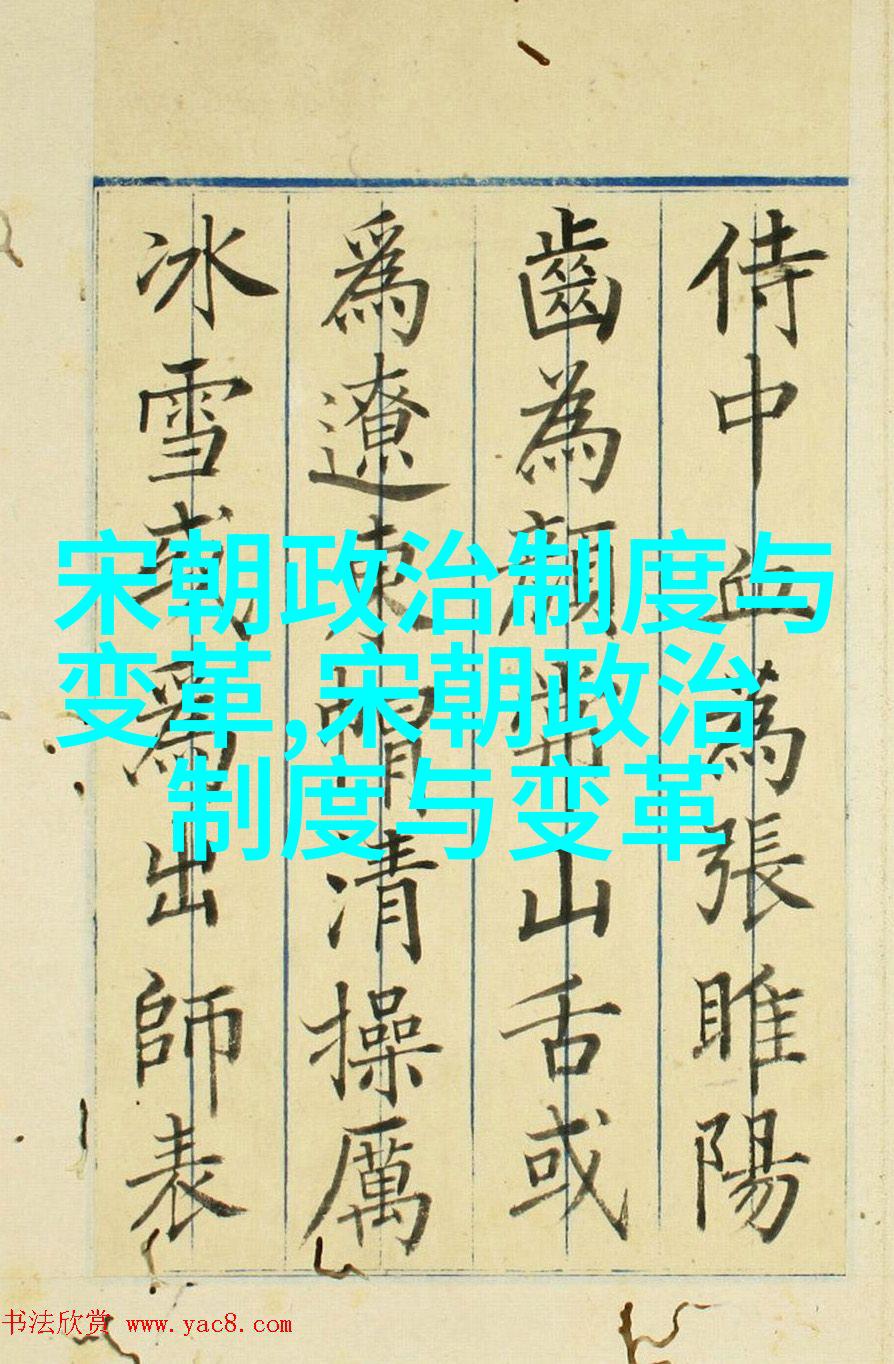 侍中血為張睢陽
齒為顏常山舌或
為遼東帽清操厲
冰雪或為出師表
宋朝政治制度与
变革,宋朝政治
制度与变革
书法欣赏 www.yac8.com